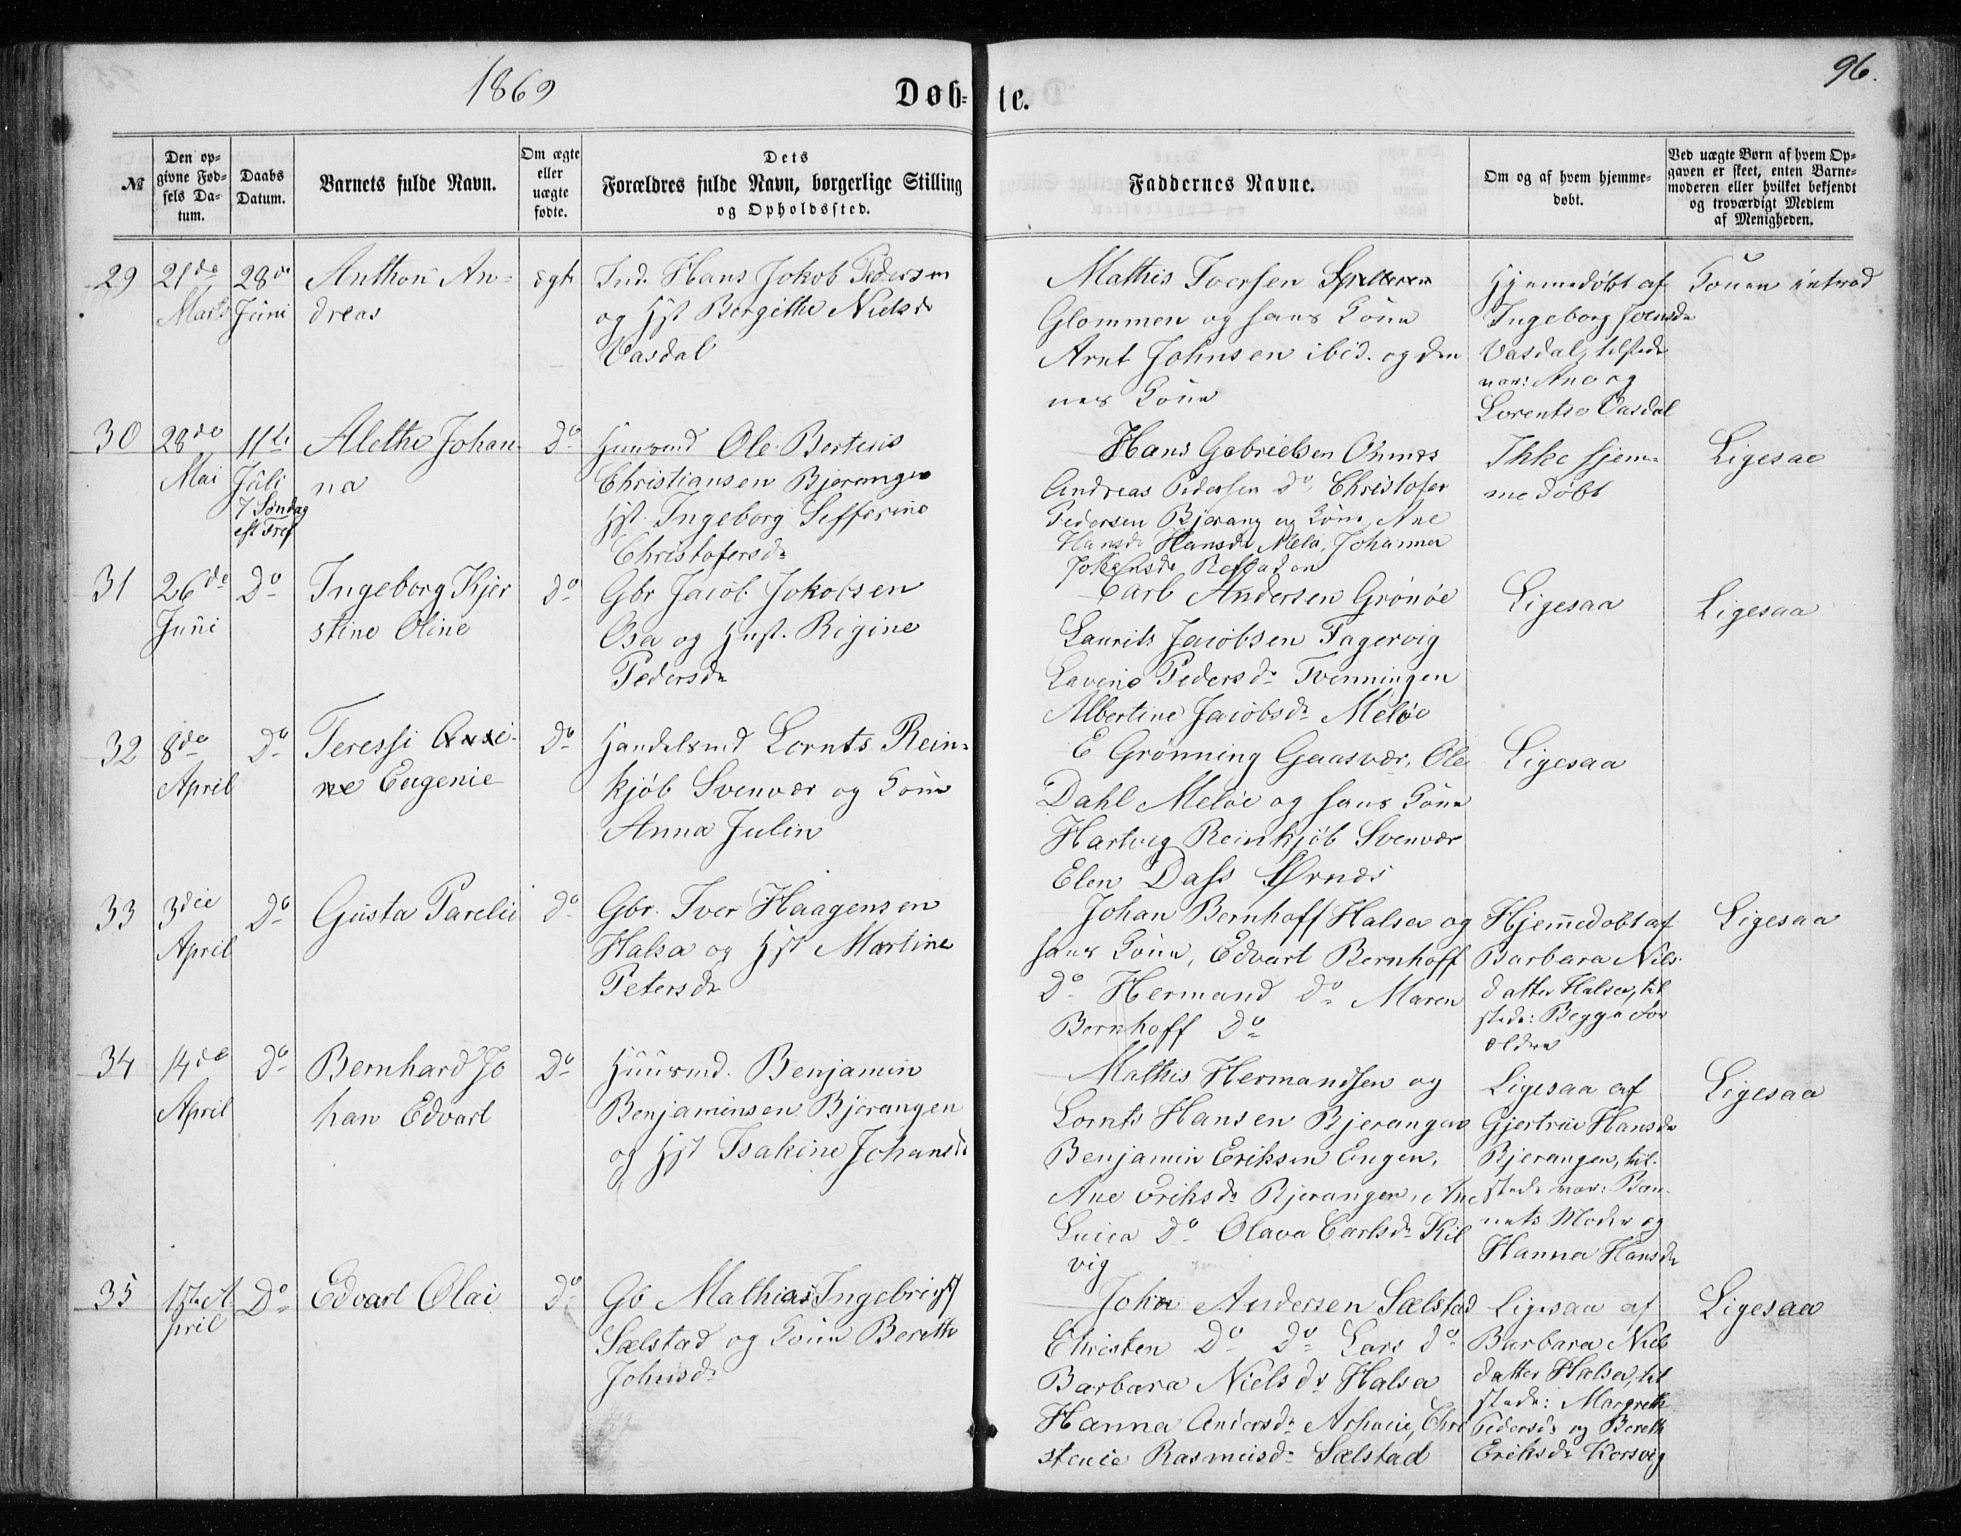 1869
Døb-
te.
96.
№
Den op-
givne Fød-
sels Da-
tum.
Daabs
Datum.
Barnets fulde Navn.
Om ægte
eller
uægte
fødte.
Dets
Forældres fulde Navn, borgerlige Stilling
og Opholdssted.
Faddernes Navne.
Om og af hvem hjemme-
døbt.
Ved uægte Børn af hvem Op-
gaven er skeet, enten Barne-
moderen eller hvilket bekjendt
og troværdigt Medlem
af Menigheden.
29
21de
Marts
28de
Juni
Anthon An-
dreas
Ind. Hans Jakob Pedersen
og Hst Bergithe Nielsdr
Vasdal
Mathis Iversen
Glommen og hans Kone
Arnt Johnsen ibid. og den
nes Kone
Hjemmedøbt af
Ingeborg
Vasdal, tilstede
var: Ane og
Lorentse Vasdal
Konen introd
30
28de
Mai
11te
Juli
7 Søndag
eft Tref
Alethe Johan
na
Do
Huusmd Ole Berteus
Christiansen Bjerangen
Hst. Ingeborg Sefferine
Christofersdr
Hans Gabrielsen
Andreas Pedersen Do, Christofer
Pedersen Bjerang og Kone, Ane
Hansdr Hansdr Melø, Johanna
Ikke hjem-
me døbt
Ligesaa
31
26de
Juni
Do
Ingeborg Kjer
stine Oline
Do
Gbr Jacob Jakobsen
Osa og Hust. Rigine
Pedersdr
Carl Andersen Grønøe
Laurits Jacobsen Fagervig
Lavine Pedersdr Tvenningen
Albertine Jacobsdr Meløe
Ligesaa
Ligesaa
32
8de
April
Do
Teressi
ne Eugenie
Do
Handelsmd Lornts Rein-
kjøb Svenvær og Kone
Anna Julin
E Grønning Gaasvær, Ole
Dahl Meløe og hans Kone
Hartvig Reinkjøb Svenvær
Elen Dass Ørnes
Ligesaa
33
3die
April
Do
Gusta Parelii
Do
Gbr. Iver Haagensen
Halsa og Hst Martine
Petersdr
Johan Bernhoff Halsa og
hans Kone, Edvart Bernhoff
Do Hermand Do Maren
Bernhoff Do
Hjemmedøbt af
Barbara Niels-
datter Halsa, til
stede: Begge For
ældre
Ligesaa
34
14de
April
Do
Bernhard Jo
han Edvart
Do
Huusmd. Benjamin
Benjaminsen Bjerangen
og Hst Isakine Johansd
Mathis Hermandsen og
Lornts Hansen Bjerangen
Benjamin Eriksen Engen,
Ane Eriksdr Bjerangen, Ane
Lucia Do Olava Carlsdr Kil
vig
Ligesaa af
Gjertrue Hansdr
Bjerangen, til-
stede var: Bar-
nets Moder og
Hanna Hansdr
Ligesaa
35
1ste A
pril
Do
Edvart Olai
Do
Gb Mathias Ingebrigts
Sælstad og Kone Berethe
Johnsdr
John Andersen Sælstad
Christen Do Do Lars Do
Barbara Nielsdr Halsa
Hanna Andersdr Chri
stence Rasmusdr Sælstad
Ligesaa af
Barbara Niels
datter Halsa, til
stede: Margrethe
Pedersdr og Bereth
Eriksdr Korsvig
Ligesaa